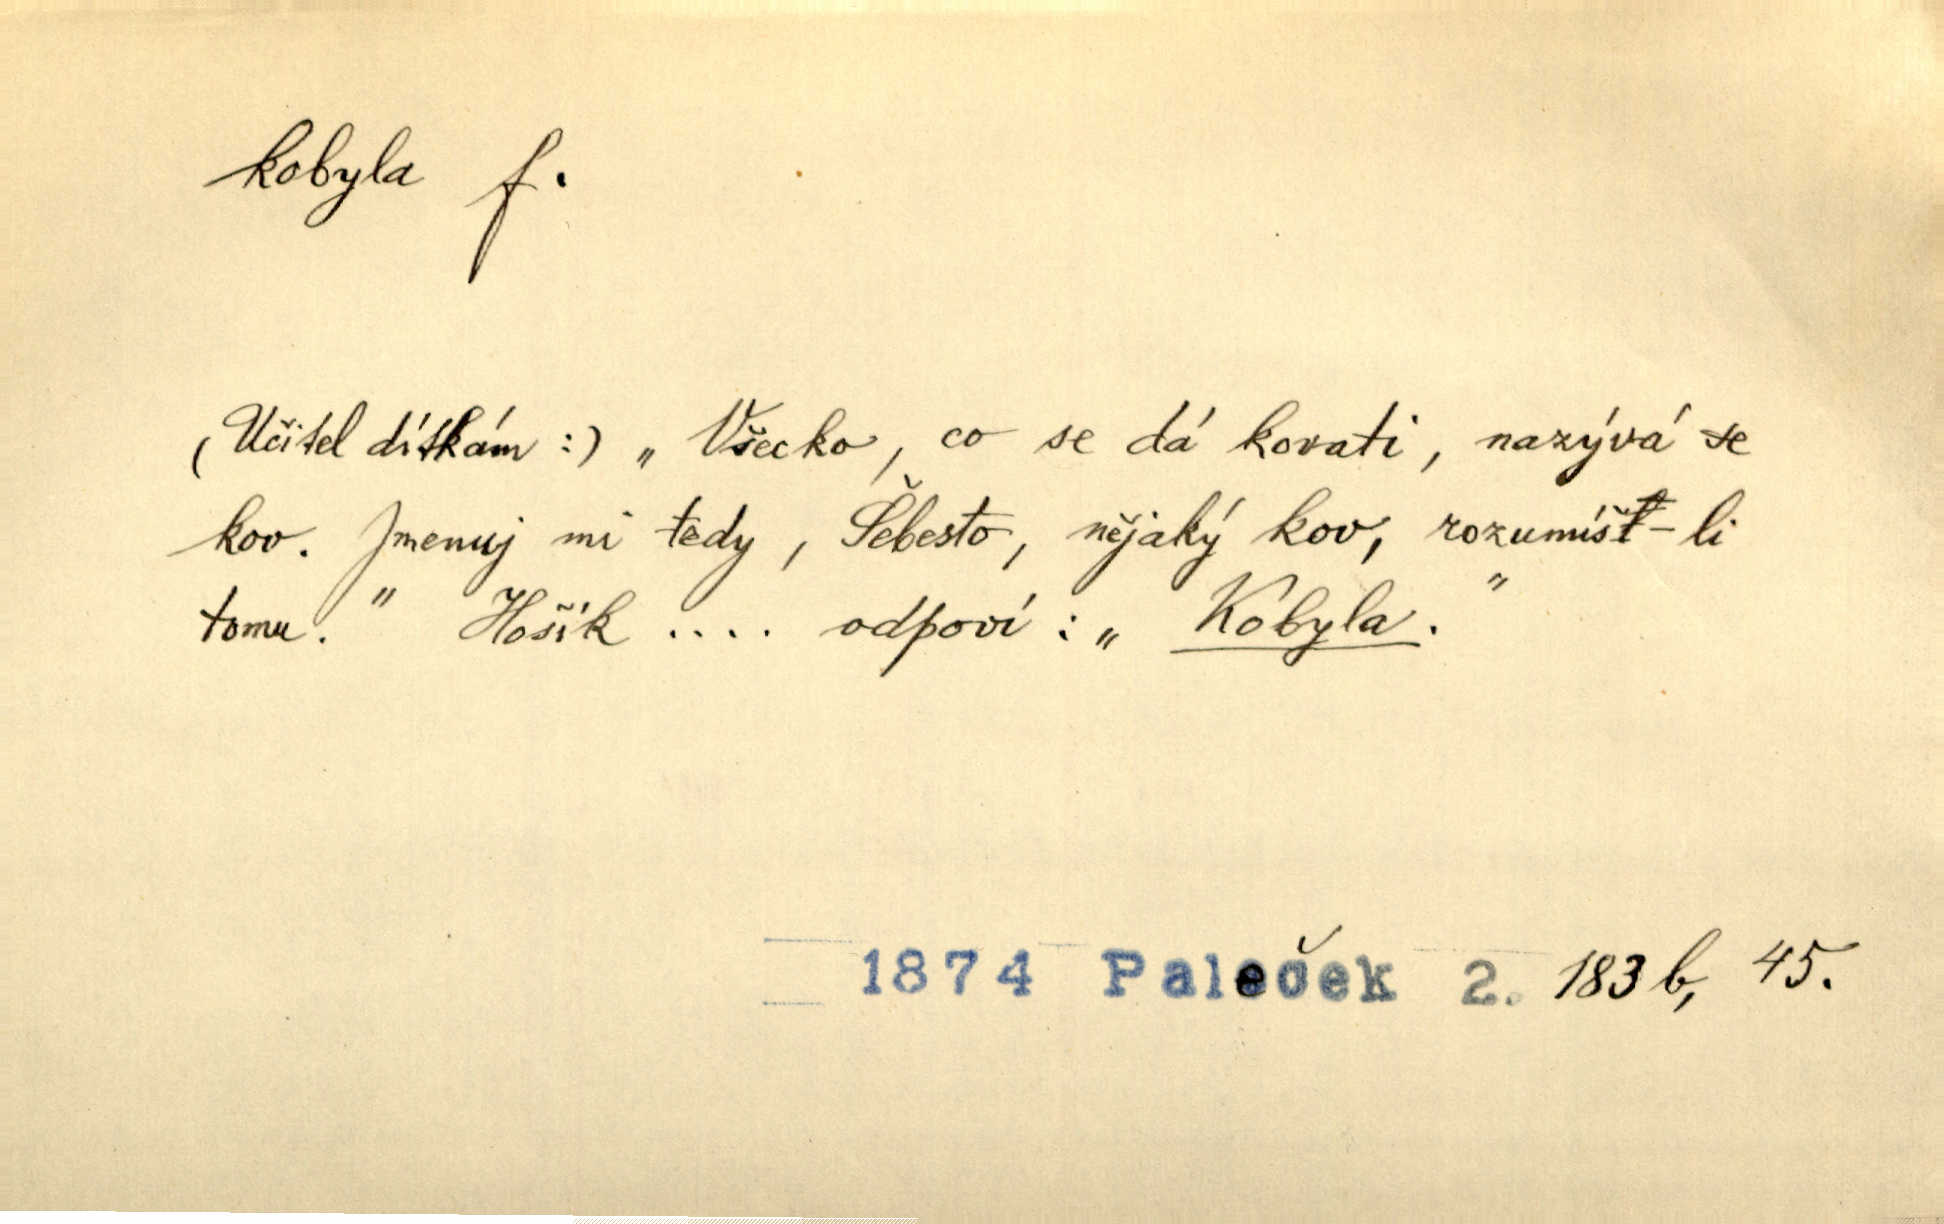 kobyla f.
(Učitel dítkám :) „Všecko, co se dá kovati, nazývá se
kov. Jmenuj mi tedy, Šebesto, nějaký kov, rozumíš-li
tomu." Hošík .... odpoví : „Kobyla."
1874 Paleček 2. 183 b, 45.